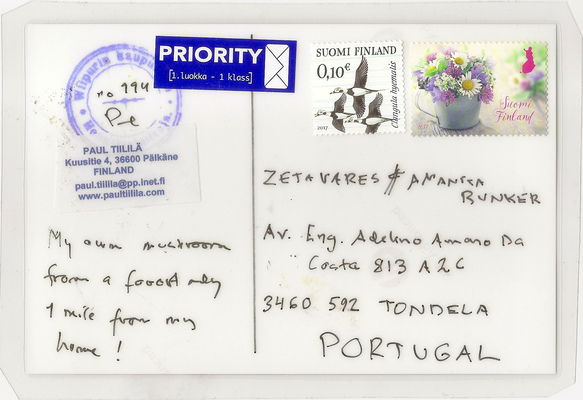 PRIORITY
[1.luokka - 1 klass]
SUOMI FINLAND
0,10€
Clangula hyemalis
2017
Suomi
Finland
2017
Wiipurin
no 794
Pe
PAUL TIILILÄ
Kuusitie 4, 36600 Pälkäne
FINLAND
paul.tiilila@pp.inet.fi
www.paultiilila.com
My own mushroom
from a fooost only
1 mile from my
home!
ZETAVARES & AMANTA
BUNKER
Av. Eng. Adelino Amaro Da
Costa 813 A2C
3460 592 TONDELA
PORTUGAL